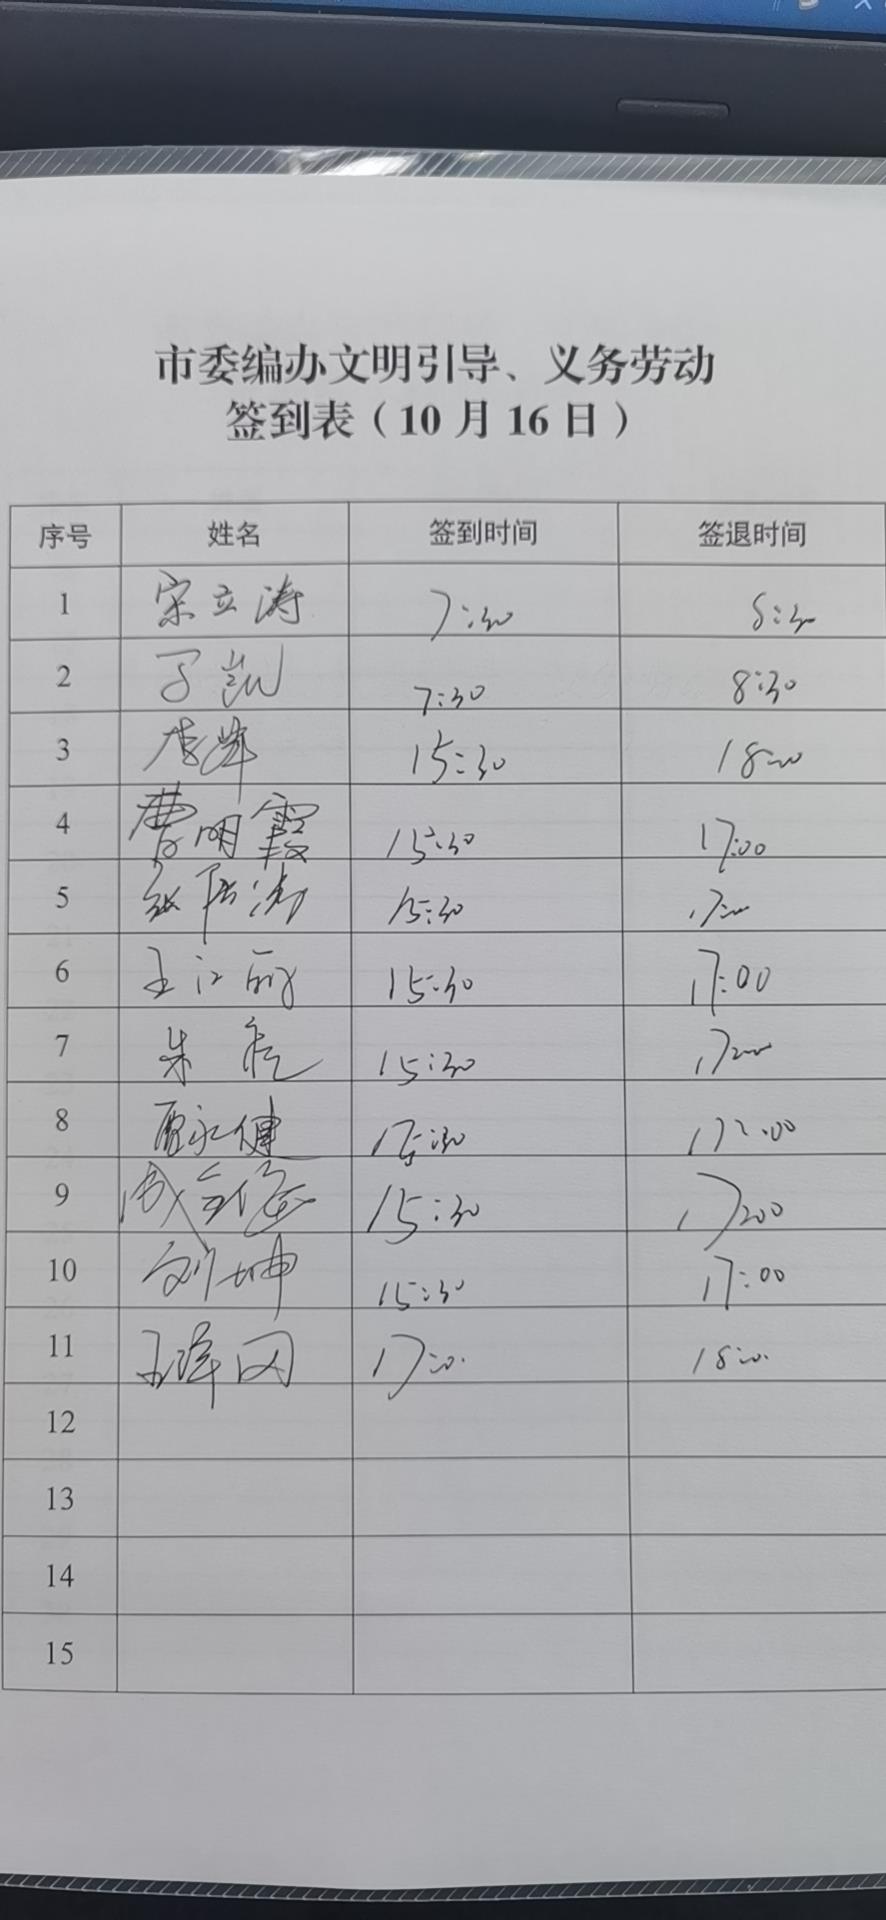 市委编办文明引导、义务劳动
签到表（10月16日）
序号 姓名 签到时间 签退时间
1 宋立涛 7:30 8:30
2 于凯 7:30 8:30
3 李 15:30 18:00
4 曹明霞 15:30 17:00
5 15:30 17:00
6 王江丽 15:30 17:00
7 朱 15:30 17:00
8 永健 15:30 17:00
9 15:30 17:00
10 刘坤 15:30 17:00
11 王泽 17:00 18:00
12
13
14
15